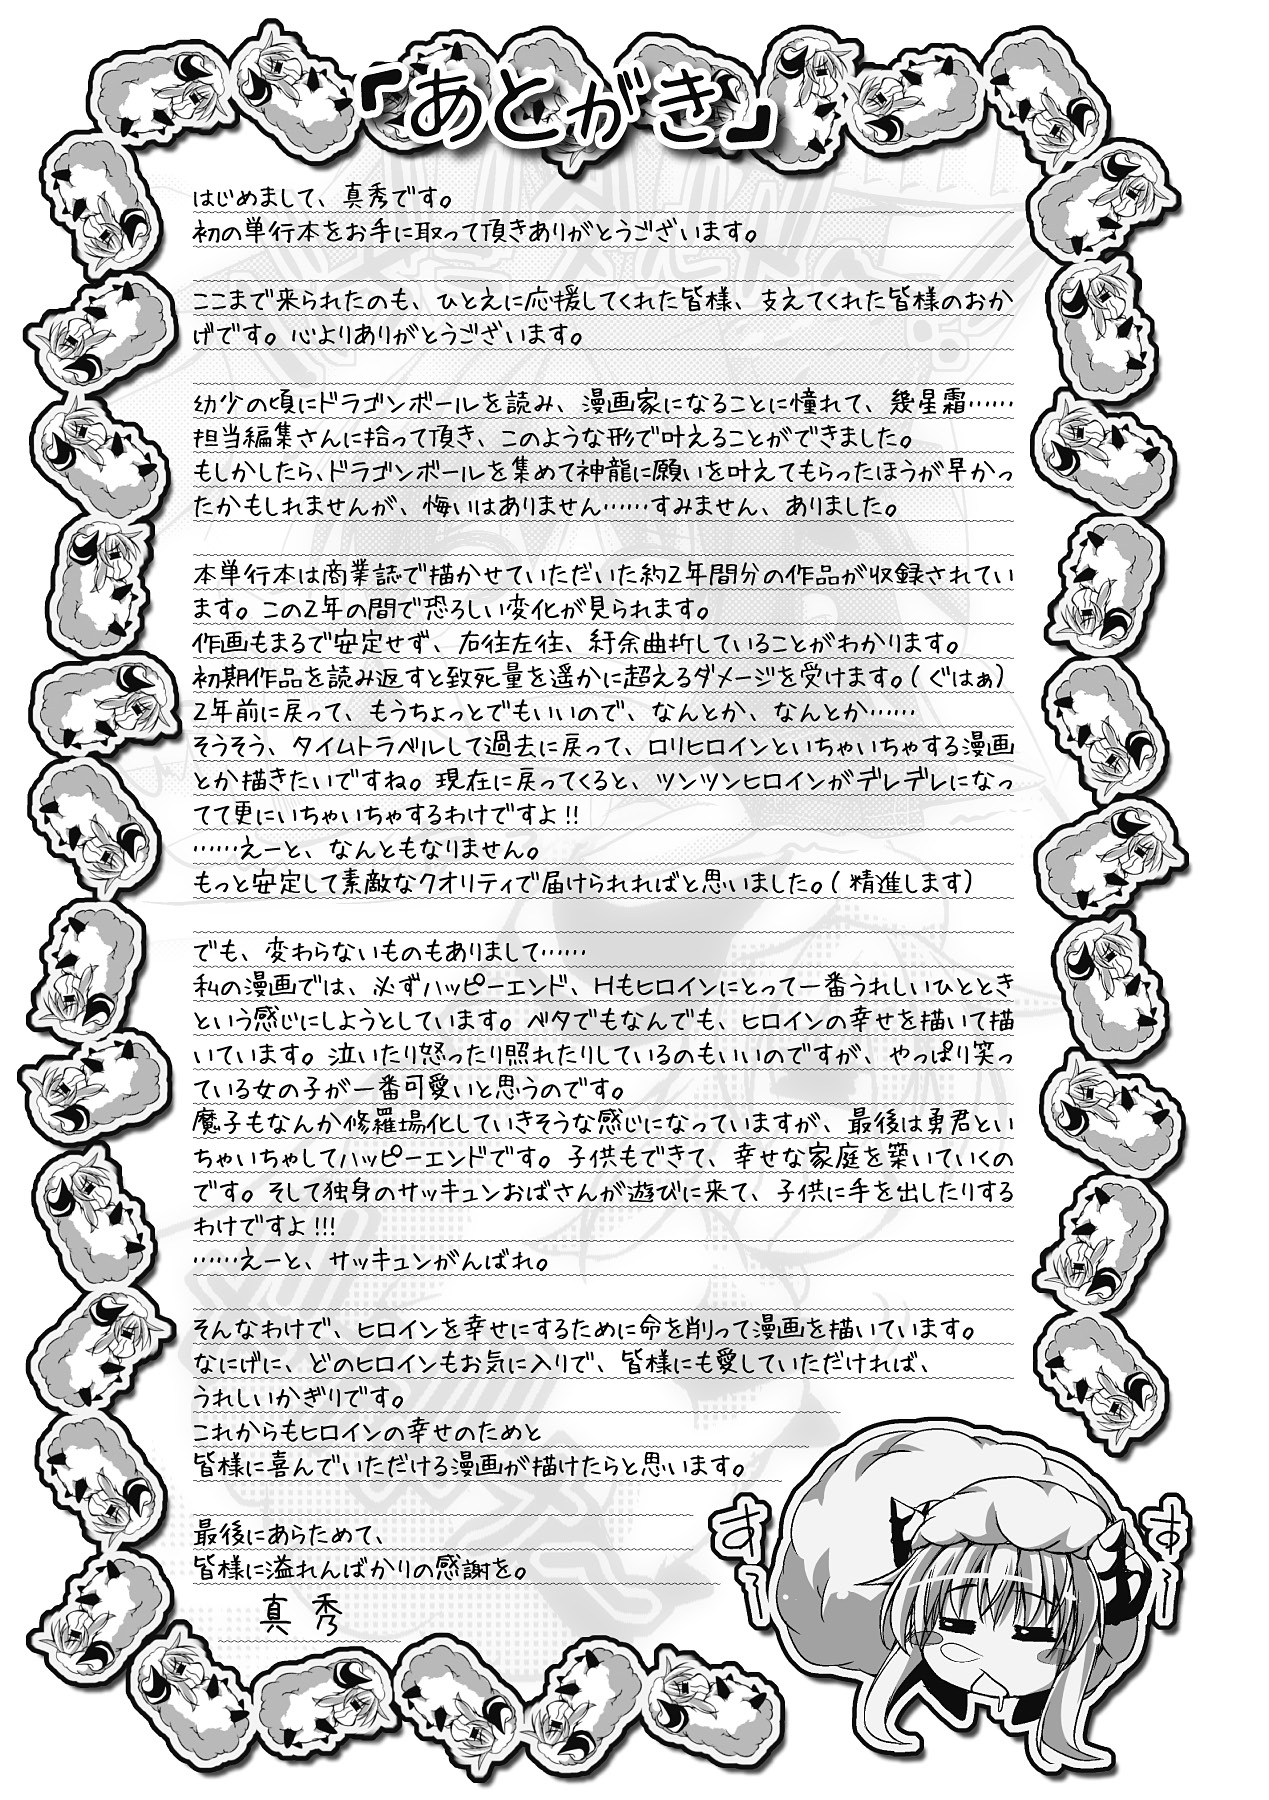 『あとがき』
はじめまして、真秀です。
初の単行本をお手に取って頂きありがとうございます。
ここまで来られたのも、ひとえに応援してくれた皆様、支えてくれた皆様のおか
げです。心よりありがとうございます。
幼少の頃にドラゴンボールを読み、漫画家になることに憧れて、幾星霜……
担当編集さんに拾って頂き、このような形で叶えることができました。
もしかしたら、ドラゴンボールを集めて神龍に願いを叶えてもらったほうが早かっ
たかもしれませんが、悔いはありません……すみません、ありました。
本単行本は商業誌で描かせていただいた約2年間分の作品が収録されてい
ます。この2年の間で恐ろしい変化が見られます。
作画もまるで安定せず、右往左往、紆余曲折していることがわかります。
初期作品を読み返すと致死量を遥かに超えるダメージを受けます。(ぐはぁ)
2年前に戻って、もうちょっとでもいいので、なんとか、なんとか……
そうそう、タイムトラベルして過去に戻って、ロリヒロインといちゃいちゃする漫画
とか描きたいですね。現在に戻ってくると、ツンツンヒロインがデレデレになっ
てて更にいちゃいちゃするわけですよ!!
……えーと、なんともなりません。
もっと安定して素敵なクオリティで届けられればと思いました。(精進します)
でも、変わらないものもありまして……
私の漫画では、必ずハッピーエンド、Hもヒロインにとって一番うれしいひととき
という感じにしようとしています。ベタでもなんでも、ヒロインの幸せを描いて描
いています。泣いたり怒ったり照れたりしているのもいいのですが、やっぱり笑っ
ている女の子が一番可愛いと思うのです。
魔子もなんか修羅場化していきそうな感じになっていますが、最後は勇君とい
ちゃいちゃしてハッピーエンドです。子供もできて、幸せな家庭を築いていくの
です。そして独身のサッキュンおばさんが遊びに来て、子供に手を出したりする
わけですよ!!!
……えーと、サッキュンがんばれ。
そんなわけで、ヒロインを幸せにするために命を削って漫画を描いています。
なにげに、どのヒロインもお気に入りで、皆様にも愛していただければ、
うれしいかぎりです。
これからもヒロインの幸せのためと
皆様に喜んでいただける漫画が描けたらと思います。
最後にあらためて、
皆様に溢れんばかりの感謝を。
真秀
す〜
す〜